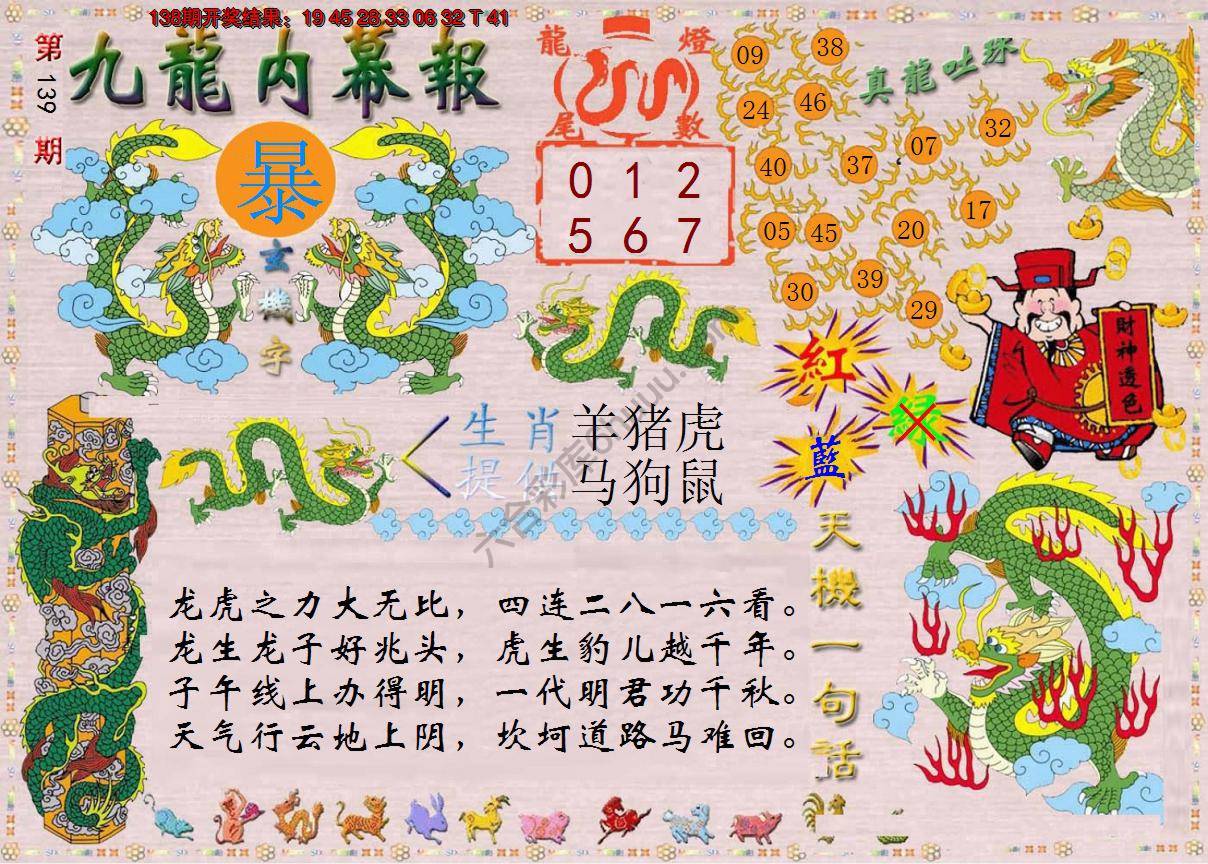 138期开奖结果：19 45 28 33 06 32 T 41
第139期
九龍内幕報
暴
玄機字
龍燈
尾數
0 1 2
5 6 7
真龍吐珠
09 38
24 46
40 37 07 32
05 45 20 17
30 39 29
財神透色
紅
綠
藍
生肖 羊猪虎
提供 马狗鼠
龙虎之力大无比，四连二八一六看。
龙生龙子好兆头，虎生豹儿越千年。
子午线上办得明，一代明君功千秋。
天气行云地上阴，坎坷道路马难回。
天機一句話